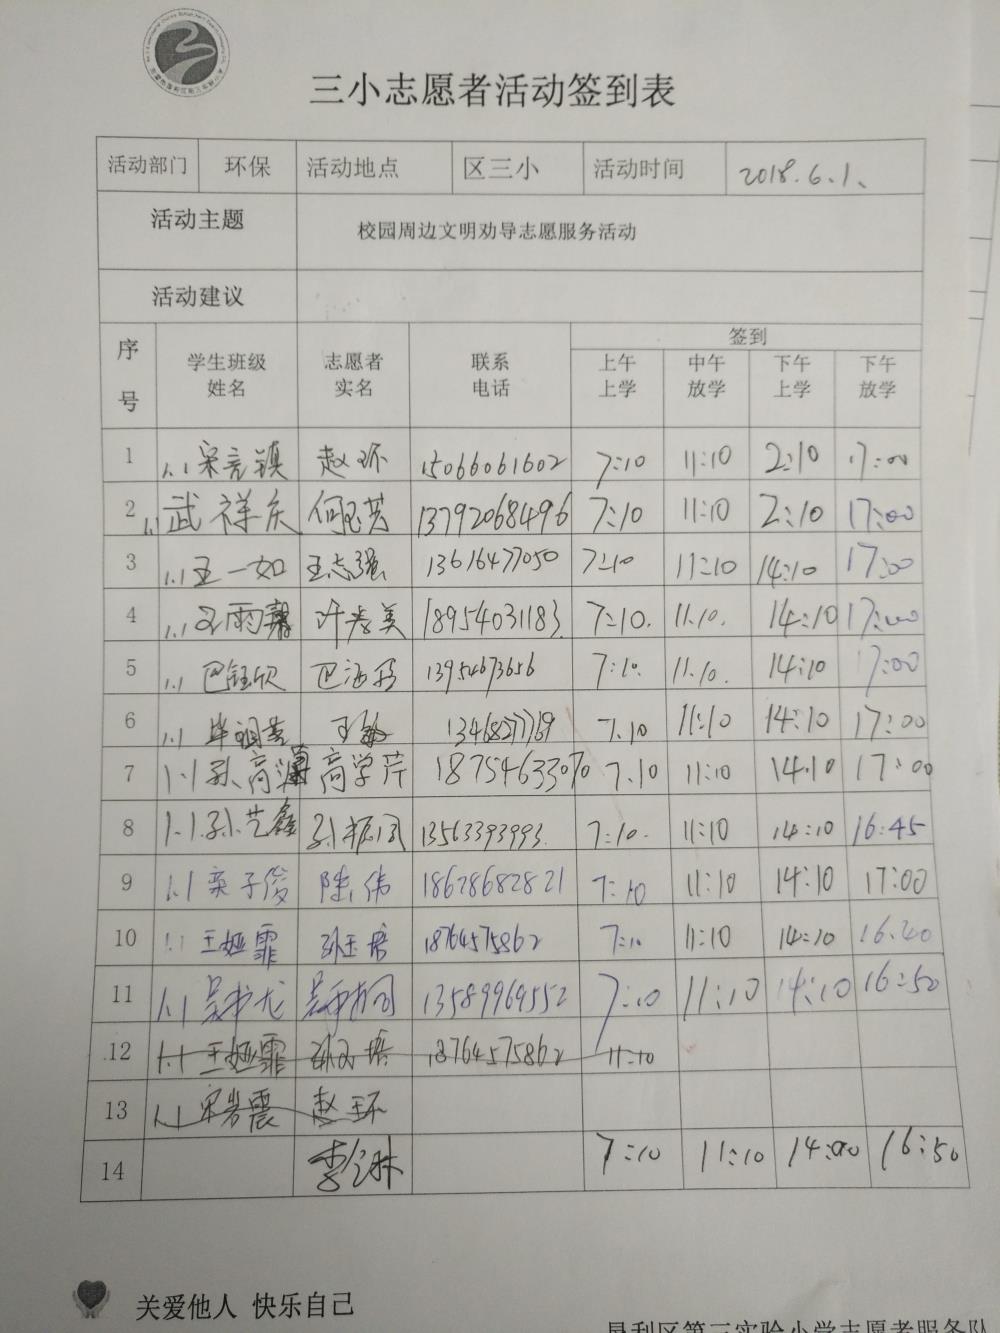 三小志愿者活动签到表
活动部门 环保 活动地点 区三小 活动时间 2018.6.1、
活动主题 校园周边文明劝导志愿服务活动
活动建议
序号 学生班级姓名 志愿者实名 联系电话 签到
上午上学 中午放学 下午上学 下午放学
1 1.1 赵环 15066061602 7:10 11:10 2:10 17:00
2 1.1 武祥 13792068496 7:10 11:10 2:10 17:00
3 1.1 王一如 王志强 13616477050 7:10 11:10 14:10 17:00
4 1.1 雨 叶 美 18954031183 7:10. 11.10. 14:10 17:00
5 1.1 巴钰欣 巴 13954673656 7:10. 11.10. 14:10 17:00
6 1.1 王敏 7.10 11:10 14:10 17:00
7 1.1 孙高 高学芹 7.10 11:10 14.10 17:00
8 1.1 孙艺鑫 孙 13563393993. 7:10. 11:10 14:10 16:45
9 1.1 子俊 陈伟 18678682821 7:10 11:10 14:10 17:00
10 1.1 王娅霏 孙玉培 18764575862 7:10 11:10 14:10 16.40
11 1.1 吴书龙 13589969552 7:10 11:10 14:10 16:50
12 1.1 王娅霏 孙玉培 18764575862 11:10
13 1.1 震 赵环
14 李 7:10 11:10 14:00 16:50
关爱他人 快乐自己
垦利区第三实验小学志愿者服务队